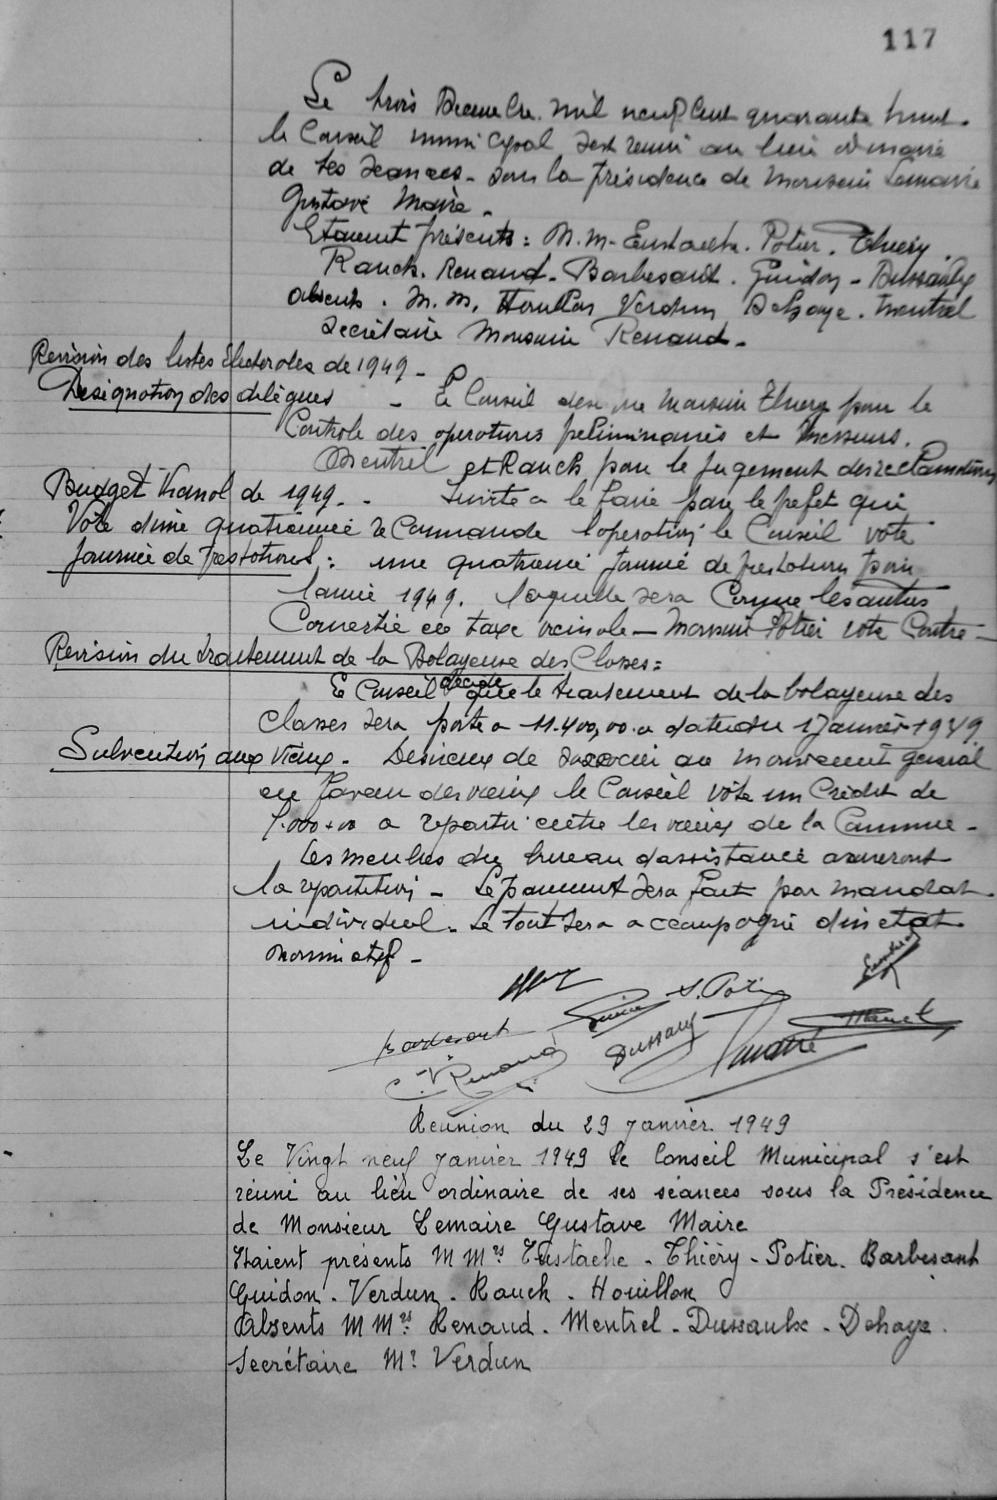 117
Le trois Décembre mil neuf cent quarante huit.
le Conseil municipal s'est reuni au lieu ordinaire
de ses seances - sous la présidence de Monsieur Lemaire
Gustave Maire -
Etaient présents : M.M. Eustache. Potier. Thiery.
Rauch. Renaud - Barbesant. Guidon - Dussaulx
absents. M.M. Houillon Verdun Dehaye. Mentrel
Secrétaire Monsieur Renaud -
Revision des listes électorales de 1949 -
Designation des délégués - Le Conseil Monsieur Thiery pour le
Controle des operations preliminaires et Messieurs.
Mentrel et Rauch pour le jugement des reclamations
Budget Vicinal de 1949 - Invité a le faire par le préfet qui
Vote d'une quatrieme recommande l'operation le Conseil vote
journée de prestations : une quatrieme journée de prestations pour
l'année 1949. laquelle sera comme les autres
Convertie en taxe vicinale - Monsieur Potier vote Contre -
Revision du traitement de la Balayeuse des Classes :
Le Conseil décide que le traitement de la balayeuse des
classes sera porté a 11.400,00 a dater du 1 Janvier 1949
Subvention aux Vieux - Desireux de s'associer au mouvement general
en faveur des vieux le Conseil vote un Crédit de
.000,00 a repartir entre les vieux de la Commune -
Les membres du bureau d'assistance assureront
la repartition - Le paiement sera fait par mandat
individuel. Le tout sera accompagné d'un etat
nominatif -
Barbesant S. Poti
Renaud Dussaulx Lemaire
Reunion du 29 janvier 1949
Le Vingt neuf janvier 1949 le Conseil Municipal s'est
réuni au lieu ordinaire de ses séances sous la Présidence
de Monsieur Lemaire Gustave Maire
Etaient présents M Mrs Eustache - Thiéry - Potier. Barbesant
Guidon - Verdun - Rauch - Houillon
Absents M Mrs Renaud - Mentrel - Dussaulx - Dehaye.
Secrétaire Mr Verdun